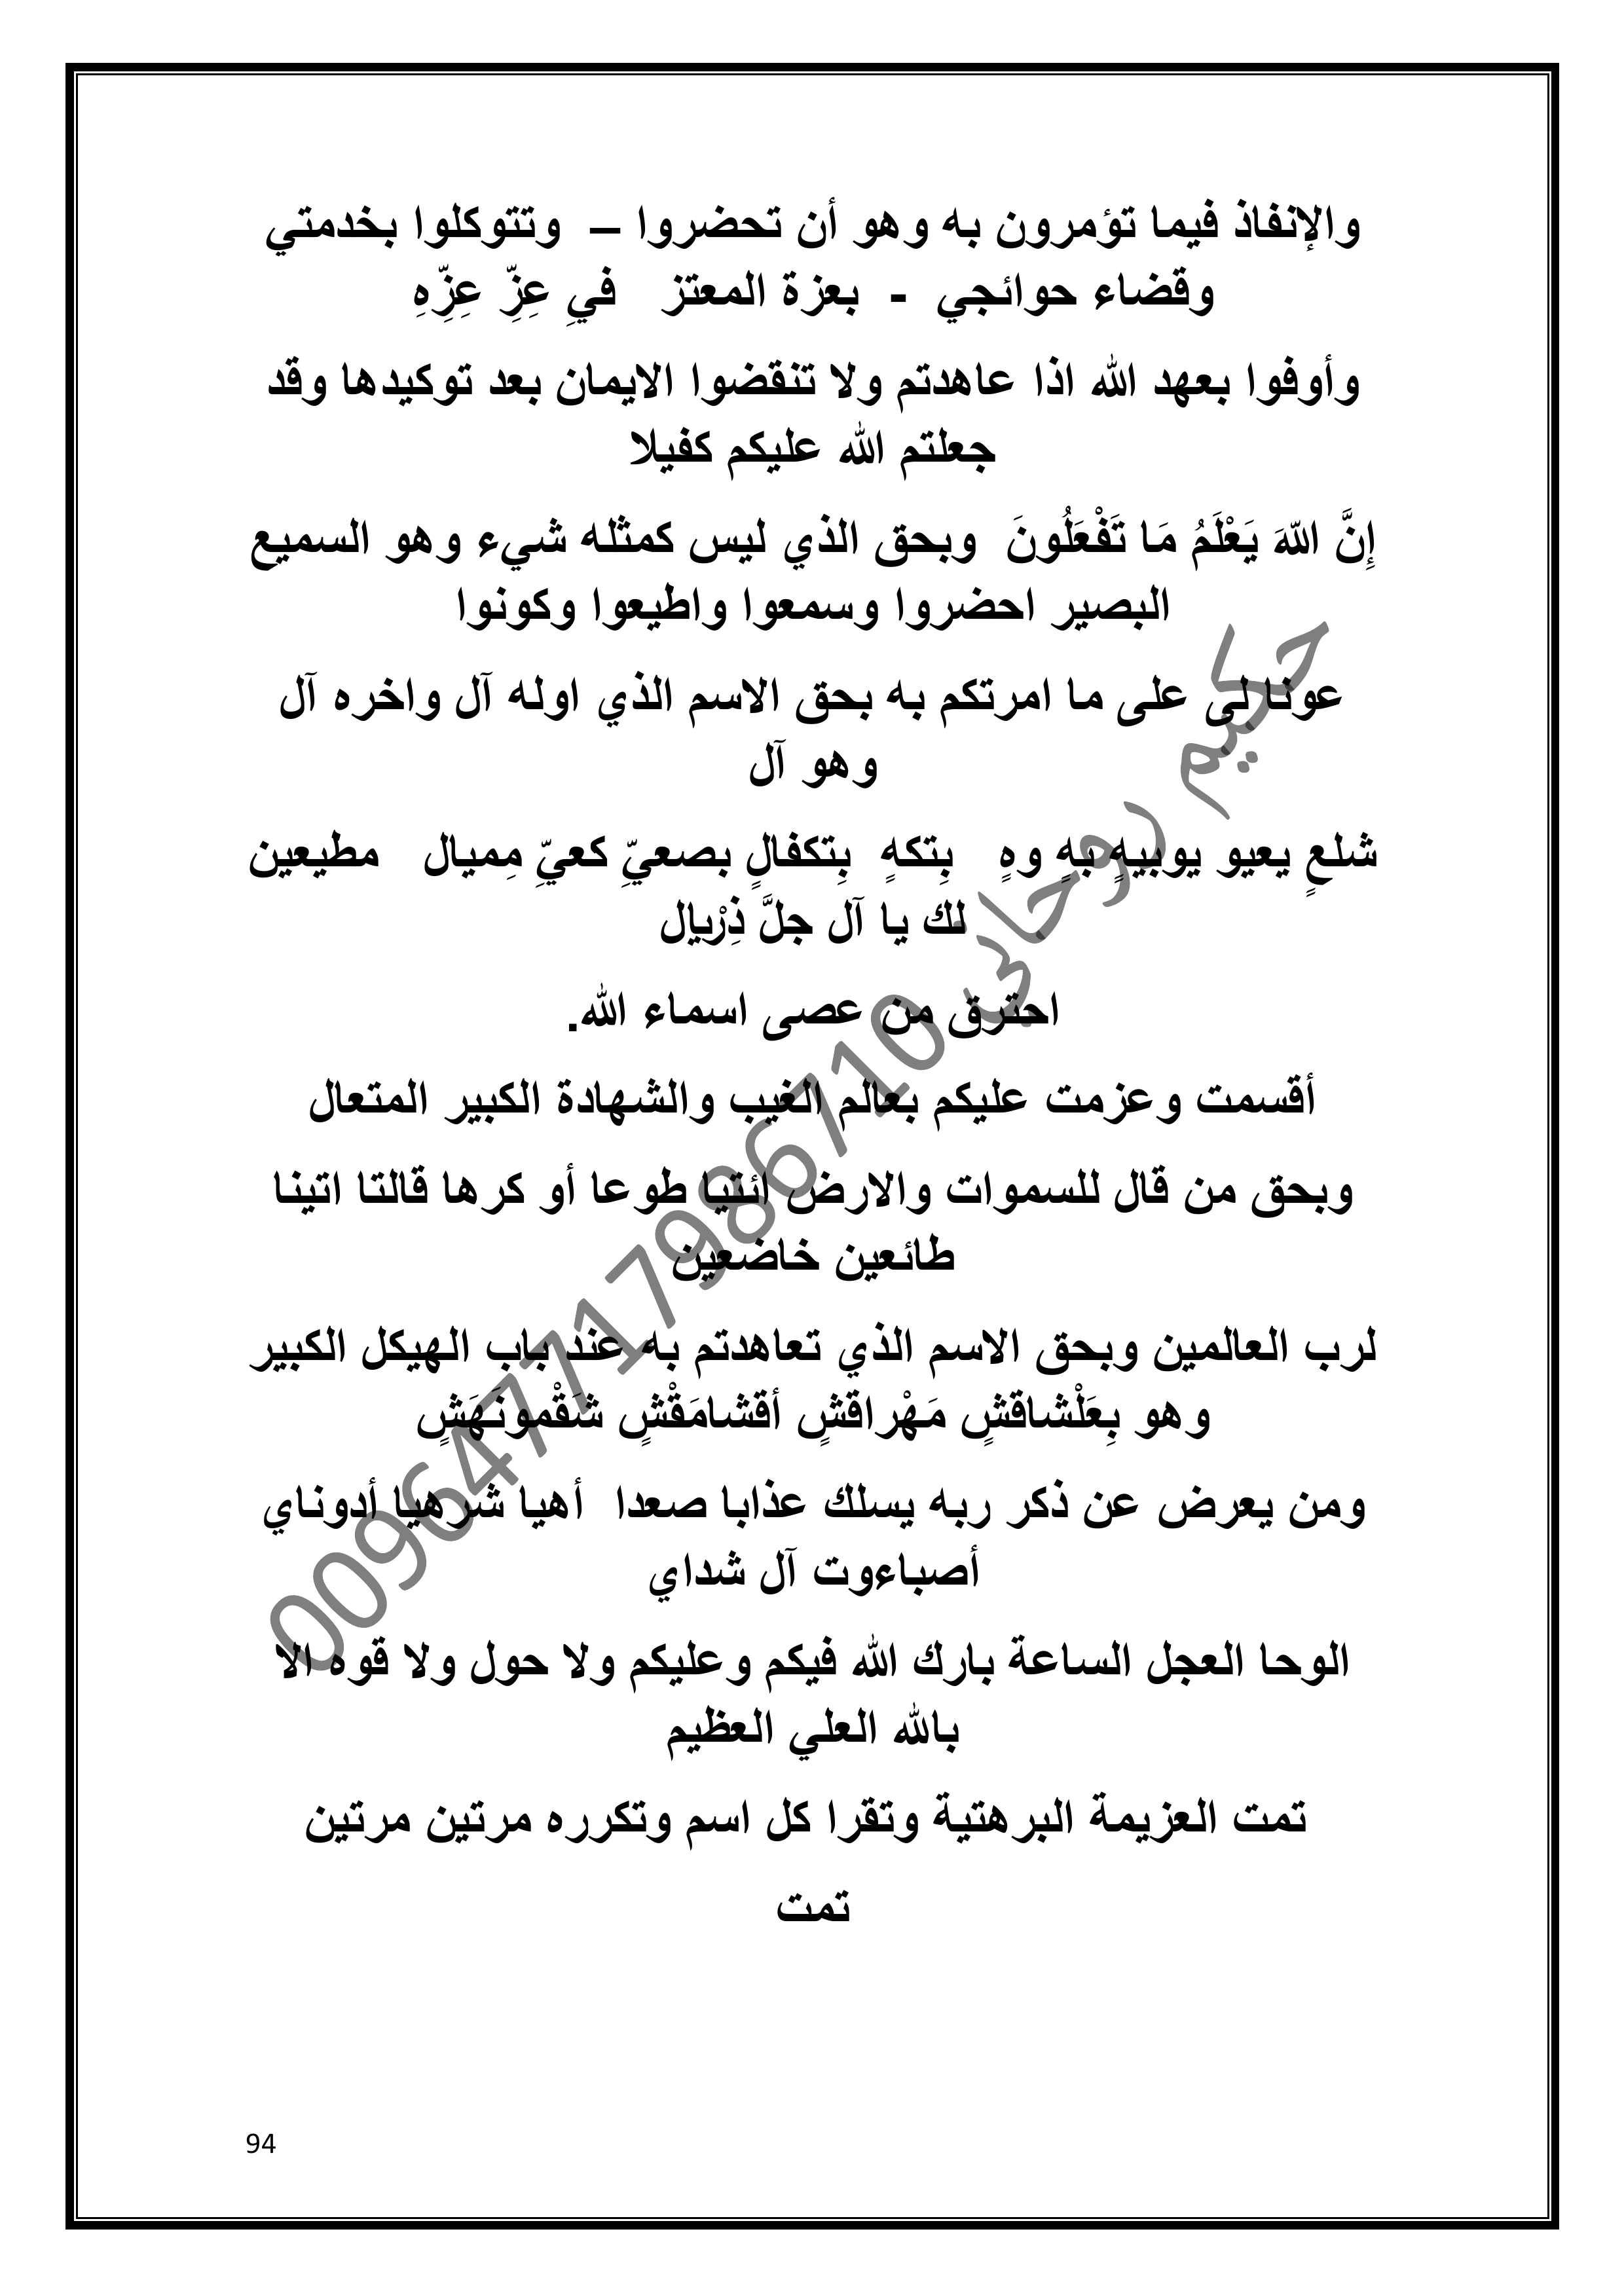 والإنفاذ فيما تؤمرون به وهو أن تحضروا – وتتوكلوا بخدمتي
وقضاء حوائجي - بعزة المعتز في عِزِّ عِزِّهِ
وأوفوا بعهد الله اذا عاهدتم ولا تنقضوا الايمان بعد توكيدها وقد
جعلتم الله عليكم كفيلا
إِنَّ اللّهَ يَعْلَمُ مَا تَفْعَلُونَ وبحق الذي ليس كمثله شيء وهو السميع
البصير احضروا وسمعوا واطيعوا وكونوا
عونا لى على ما امرتكم به بحق الاسم الذي اوله آل واخره آل
وهو آل
شلعٍ يعيو يوبيهٍ بهٍ وهٍ بِتكهٍ بِتكفالٍ بصعيِّ كعيِّ مِميال مطيعين
لك يا آل جلَّ ذِرْيإل
احترق من عصى اسماء الله.
أقسمت وعزمت عليكم بعالم الغيب والشهادة الكبير المتعال
وبحق من قال للسموات والارض ائتيا طوعا أو كرها قالتا اتينا
طائعين خاضعين
لرب العالمين وبحق الاسم الذي تعاهدتم به عند باب الهيكل الكبير
وهو بِعَلْشاقشٍ مَهْراقشٍ أقشامَقْشٍ شَقْمونَهَشٍ
ومن يعرض عن ذكر ربه يسلك عذابا صعدا أهيا شرهيا أدوناي
أصباءوت آل شداي
الوحا العجل الساعة بارك الله فيكم وعليكم ولا حول ولا قوه الا
بالله العلي العظيم
تمت العزيمة البرهتية وتقرا كل اسم وتكرره مرتين مرتين
تمت
حكيم روحاني 009647717986710
94